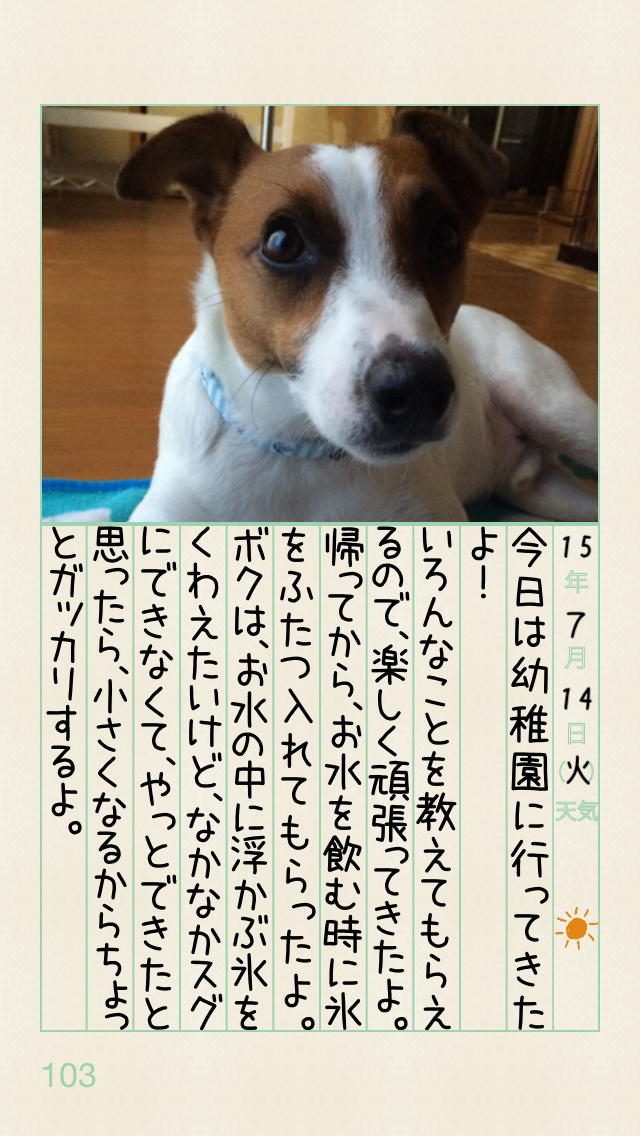 15年7月14日(火)天気
今日は幼稚園に行ってきた
よ!
いろんなことを教えてもらえ
るので、楽しく頑張ってきたよ。
帰ってから、お水を飲む時に氷
をふたつ入れてもらったよ。
ボクは、お水の中に浮かぶ氷を
くわえたいけど、なかなかスグ
にできなくて、やっとできたと
思ったら、小さくなるからちょっ
とガッカリするよ。
103